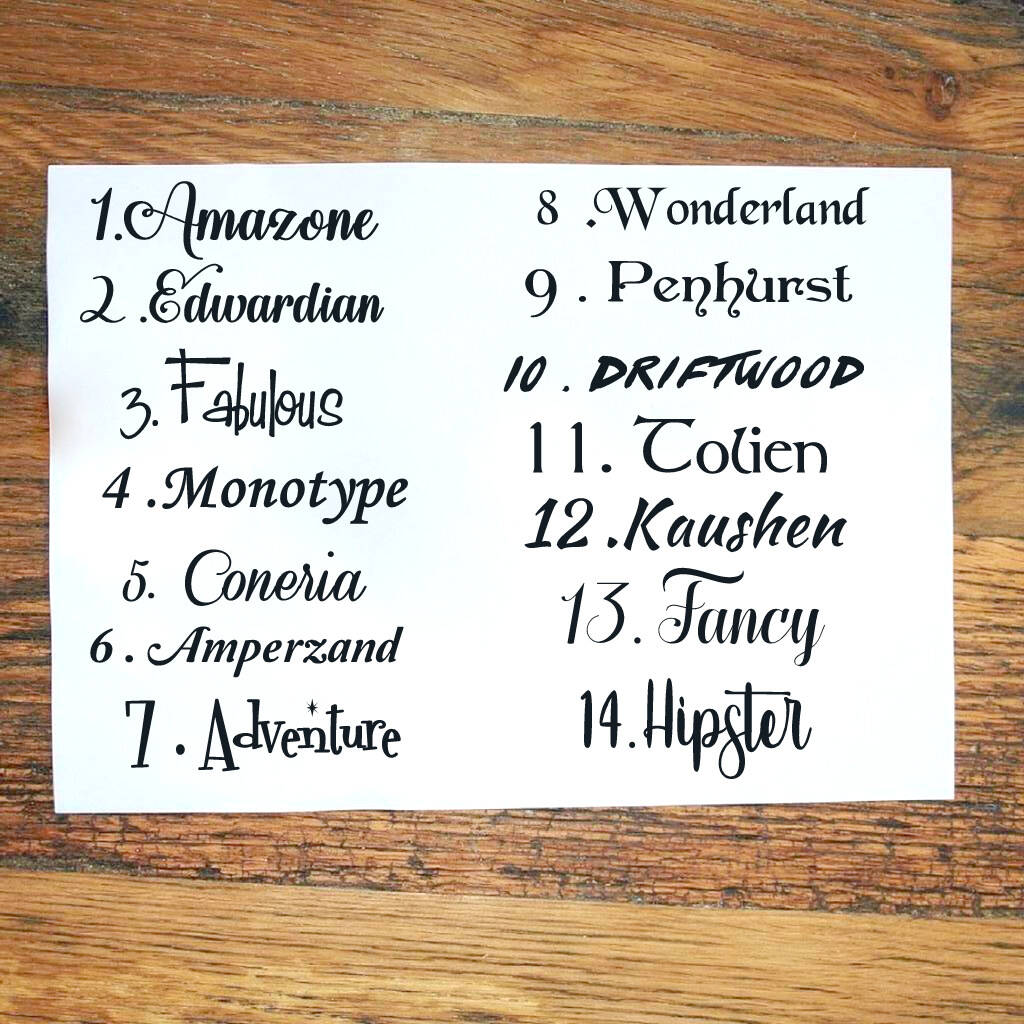 1.Amazone
2 .Edwardian
3. Fabulous
4 .Monotype
5. Coneria
6 . Amperzand
7 . Adventure
8 .Wonderland
9 . Penhurst
10 . DRIFTWOOD
11. Tolien
12 .Kaushen
13. Fancy
14.Hipster